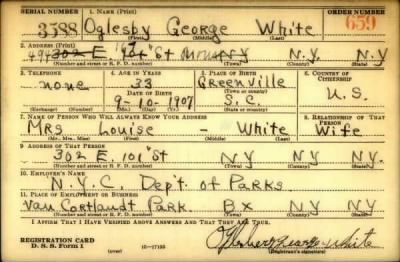 SERIAL NUMBER 1. NAME (Print) ORDER NUMBER
3588 Oglesby George White 659
(First) (Middle) (Last)
2. ADDRESS (Print)
302 E. St NY N.Y. N.Y
(Number and street or R. F. D. number) (Town) (County) (State)
3. TELEPHONE 4. AGE IN YEARS 5. PLACE OF BIRTH 6. COUNTRY OF CITIZENSHIP
none 33 Greenville U.S.
DATE OF BIRTH (Town or county)
9-10-1907 S.C.
(Exchange) (Number) (Mo.) (Day) (Yr.) (State or country)
7. NAME OF PERSON WHO WILL ALWAYS KNOW YOUR ADDRESS 8. RELATIONSHIP OF THAT PERSON
Mrs Louise - White Wife
(Mr., Mrs., Miss) (First) (Middle) (Last)
9. ADDRESS OF THAT PERSON
302 E. 101st St NY NY NY
(Number and street or R. F. D. number) (Town) (County) (State)
10. EMPLOYER'S NAME
N.Y.C. Dep't of Parks
11. PLACE OF EMPLOYMENT OR BUSINESS
Van Cortlandt Park. Bx NY
(Number and street or R. F. D. number) (Town) (County) (State)
I AFFIRM THAT I HAVE VERIFIED ABOVE ANSWERS AND THAT THEY ARE TRUE.
REGISTRATION CARD
D. S. S. Form 1 (over) 16-17105 George White
(Registrant's signature)